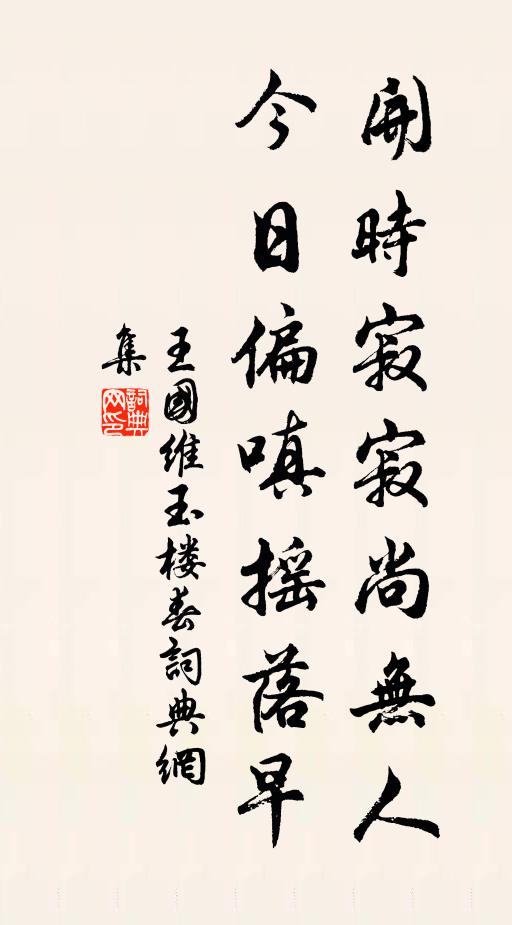 開時寂寂尚無人
今日偏嗔摇落早
王國維玉楼春詞典網
集
詞典網印